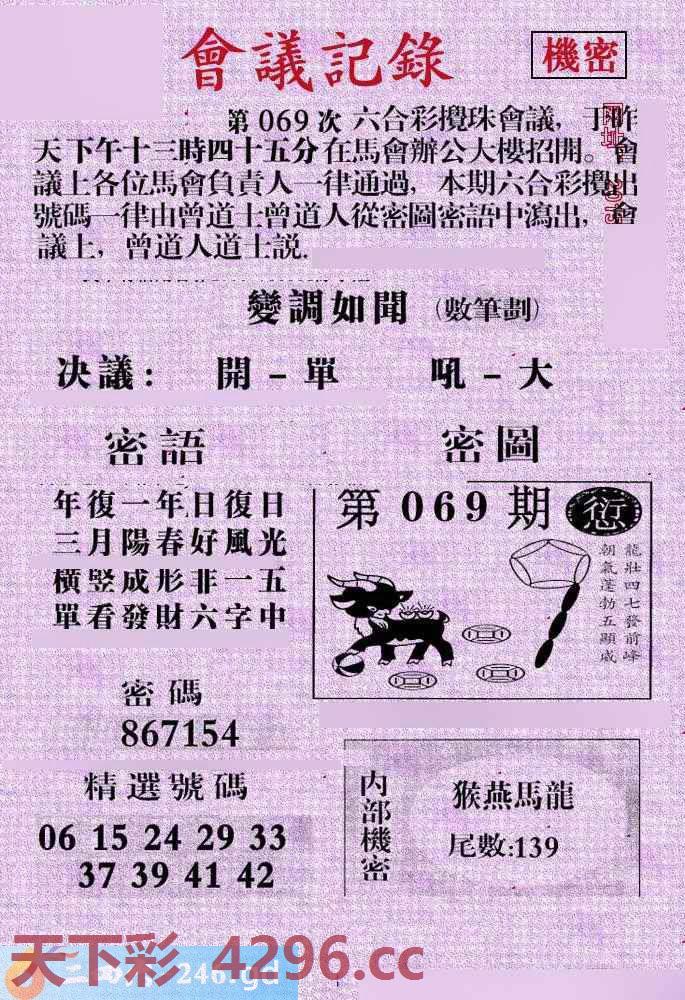 會議記錄
機密
第069次 六合彩攪珠會議，于昨
天下午十三時四十五分在馬會辦公大樓招開。會
議上各位馬會負責人一律通過，本期六合彩攪出
號碼一律由曾道士曾道人從密圖密語中瀉出，會
議上，曾道人道士説.
變調如聞（數筆劃）
决議： 開－單 吼－大
密語
年復一年日復日
三月陽春好風光
橫竖成形非一五
單看發財六字中
密圖
第069期
龍壯四七發前峰
朝氣蓬勃五顯威
密碼
867154
精選號碼
06 15 24 29 33
37 39 41 42
内部機密
猴燕馬龍
尾數:139
天下彩 4296.cc
246.gd